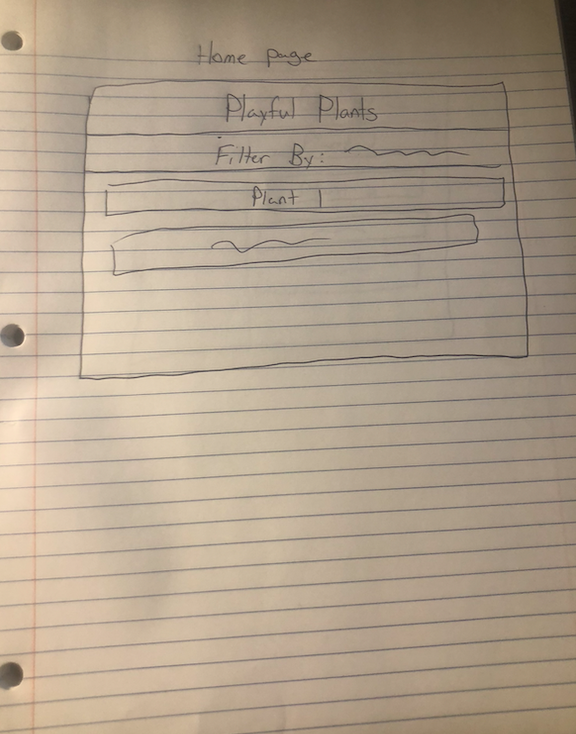 Home page
Playful Plants
Filter By:
Plant 1